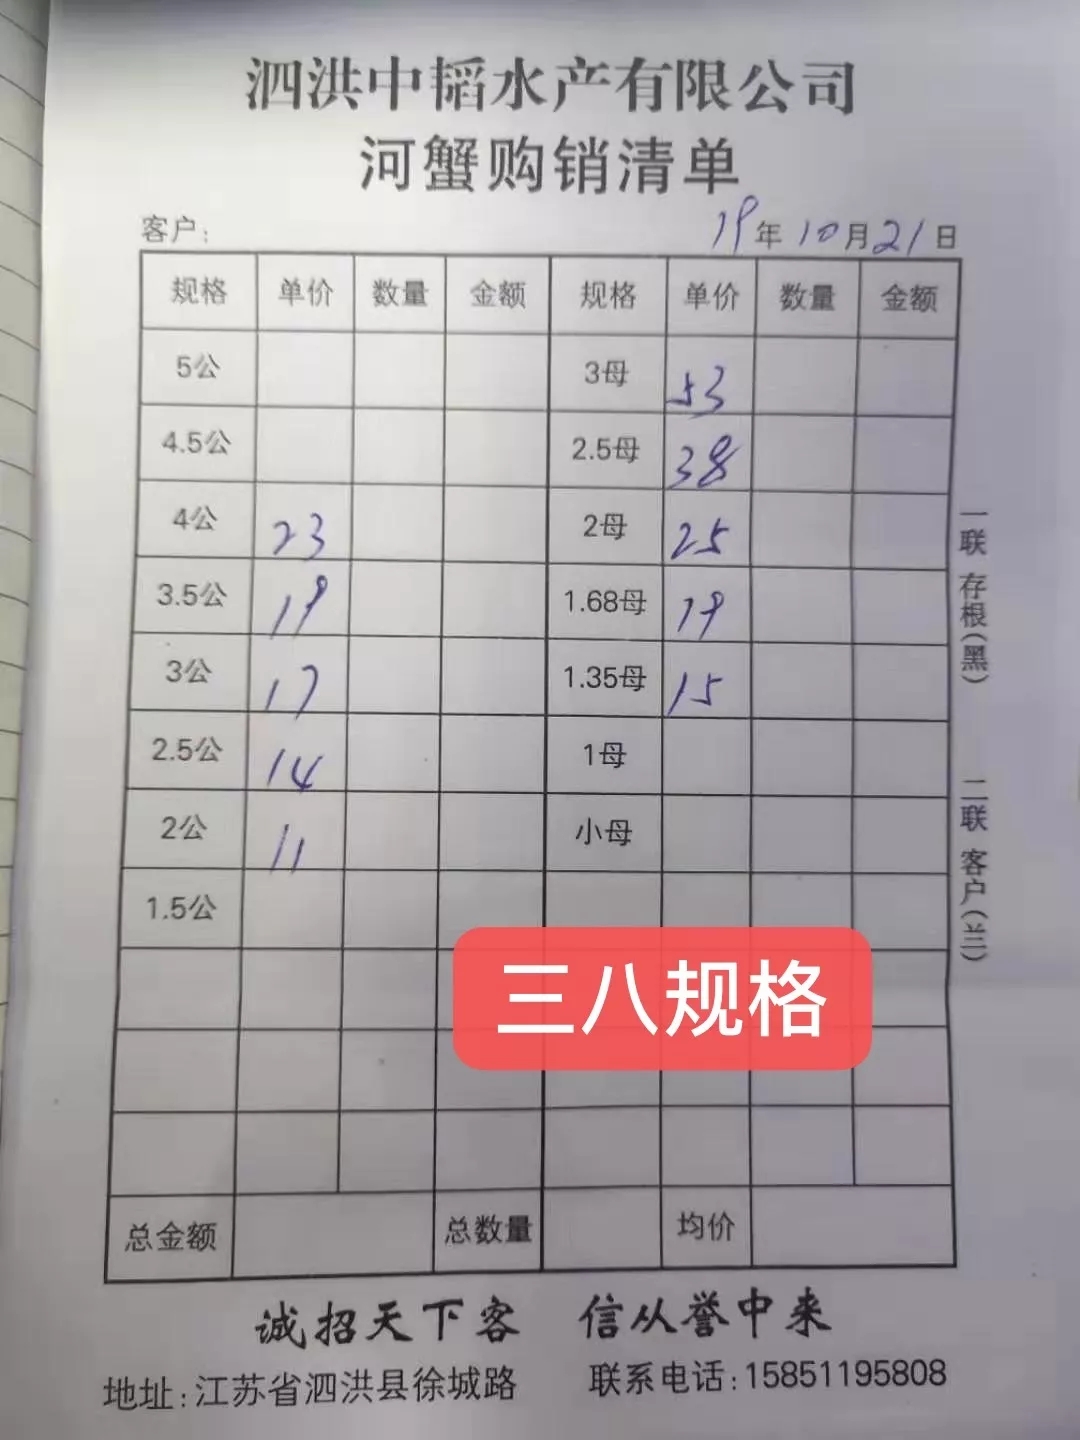 泗洪中韬水产有限公司
河蟹购销清单
客户: 19年10月21日
规格 单价 数量 金额 规格 单价 数量 金额
5公 3母 53
4.5公 2.5母 38
4公 23 2母 25
3.5公 19 1.68母 19
3公 17 1.35母 15
2.5公 14 1母
2公 11 小母
1.5公
三八规格
总金额 总数量 均价
诚招天下客 信从誉中来
地址:江苏省泗洪县徐城路 联系电话:15851195808
一联 存根(黑)
二联 客户(兰)